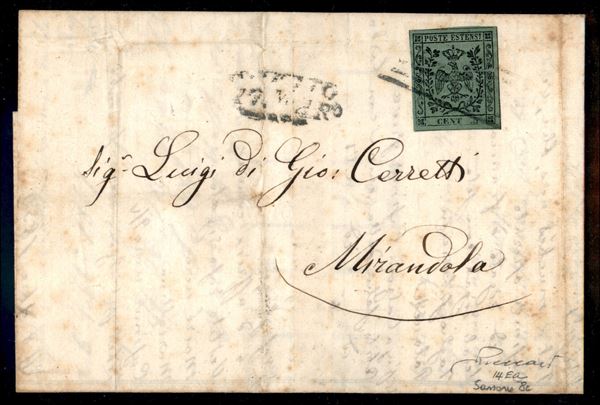 POSTE ESTENSI
CENT
Sig.r Luigi di Gio: Cerretti
Mirandola
14Ea
Sassone 8c